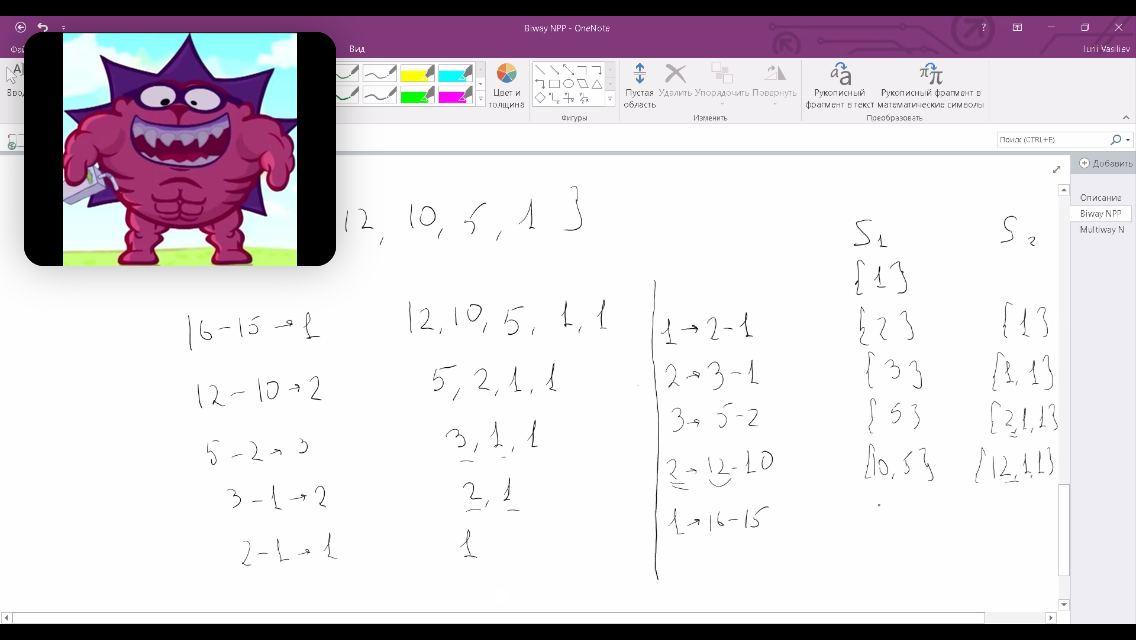 Biway NPP - OneNote
?
Вид
Iurii Vasiliev
Цвет и
толщина
Фигуры
Пустая
область
Удалить
Упорядочить
Повернуть
Изменить
Рукописный
фрагмент в текст
Рукописный фрагмент в
математические символы
Преобразовать
Поиск (CTRL+E)
Добавить
Описание
Biway NPP
Multiway N
12, 10, 5, 1 }
S1 S2
{1}
16-15→1 12, 10, 5, 1, 1 1→2-1 {2} {1}
12-10→2 5, 2, 1, 1 2→3-1 {3} {1, 1}
5-2→3 3, 1, 1 3→5-2 {5} {2,1,1}
3-1→2 2, 1 2→12-10 {10, 5} {12,1,1}
2-1→1 1 1→16-15